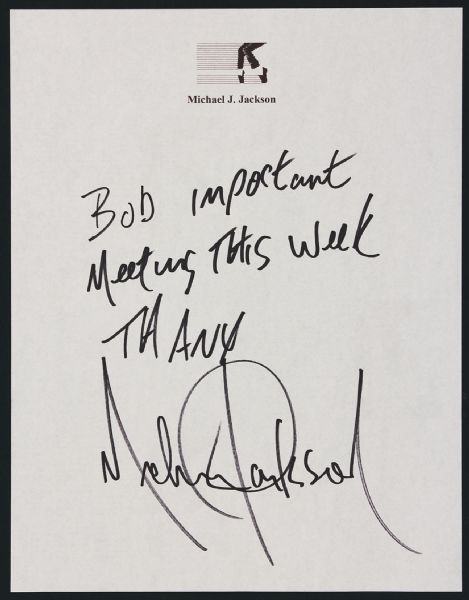 Michael J. Jackson
Bob Important
Meeting This Week
THANX
Michael Jackson